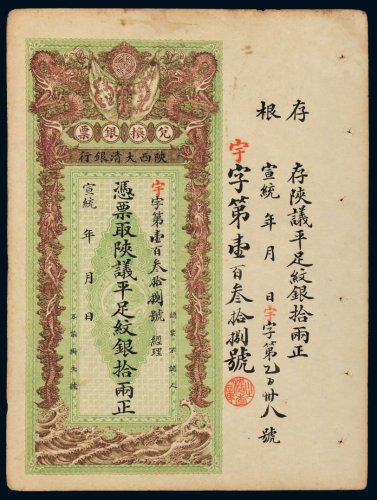 存根
存陝議平足紋銀拾兩正
宣統 年 月 日宇字第乙百卅八號
宇字第壹百叁拾捌號
兌換銀票
陝西大清銀行
宇字第壹百叁拾捌號 經理
憑票取陝議平足紋銀拾兩正
宣統 年 月 日
認票不認人